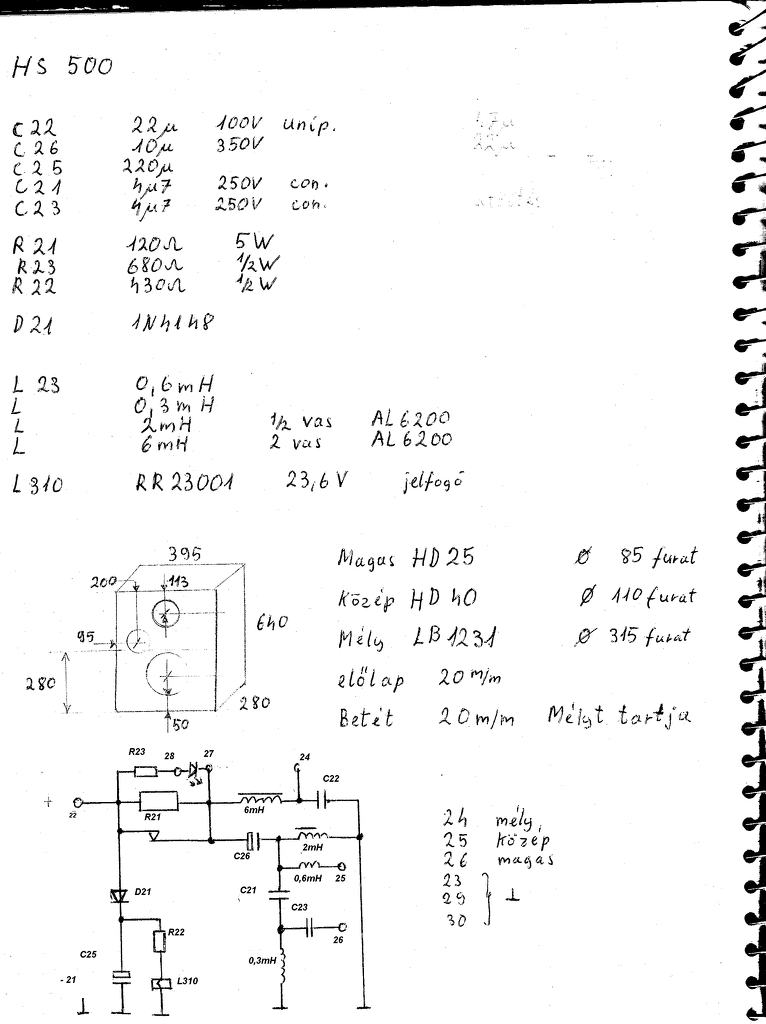 HS 500
C22 22μ 100V unip. 47μ
C26 10μ 350V 22μ
C25 220μ
C21 4μ7 250V con.
C23 4μ7 250V con.
R21 120Ω 5W
R23 680Ω 1/2W
R22 430Ω 1/2W
D21 1N4148
L 23 0,6mH
L 0,3mH
L 2mH 1/2 vas AL6200
L 6mH 2 vas AL6200
L310 RR23001 23,6V jelfogó
395
200 113
640
95
280
280
50
Magas HD25 Ø 85 furat
Közép HD40 Ø 110 furat
Mély LB1231 Ø 315 furat
előlap 20 m/m
Betét 20 m/m Mélyt tartja
R23 28 27 24
C22
+ 22
R21 6mH
C26 2mH
0,6mH 25
D21 C21
C23
R22 26
C25 0,3mH
- 21 L310
24 mély,
25 közép
26 magas
23
29 ⊥
30